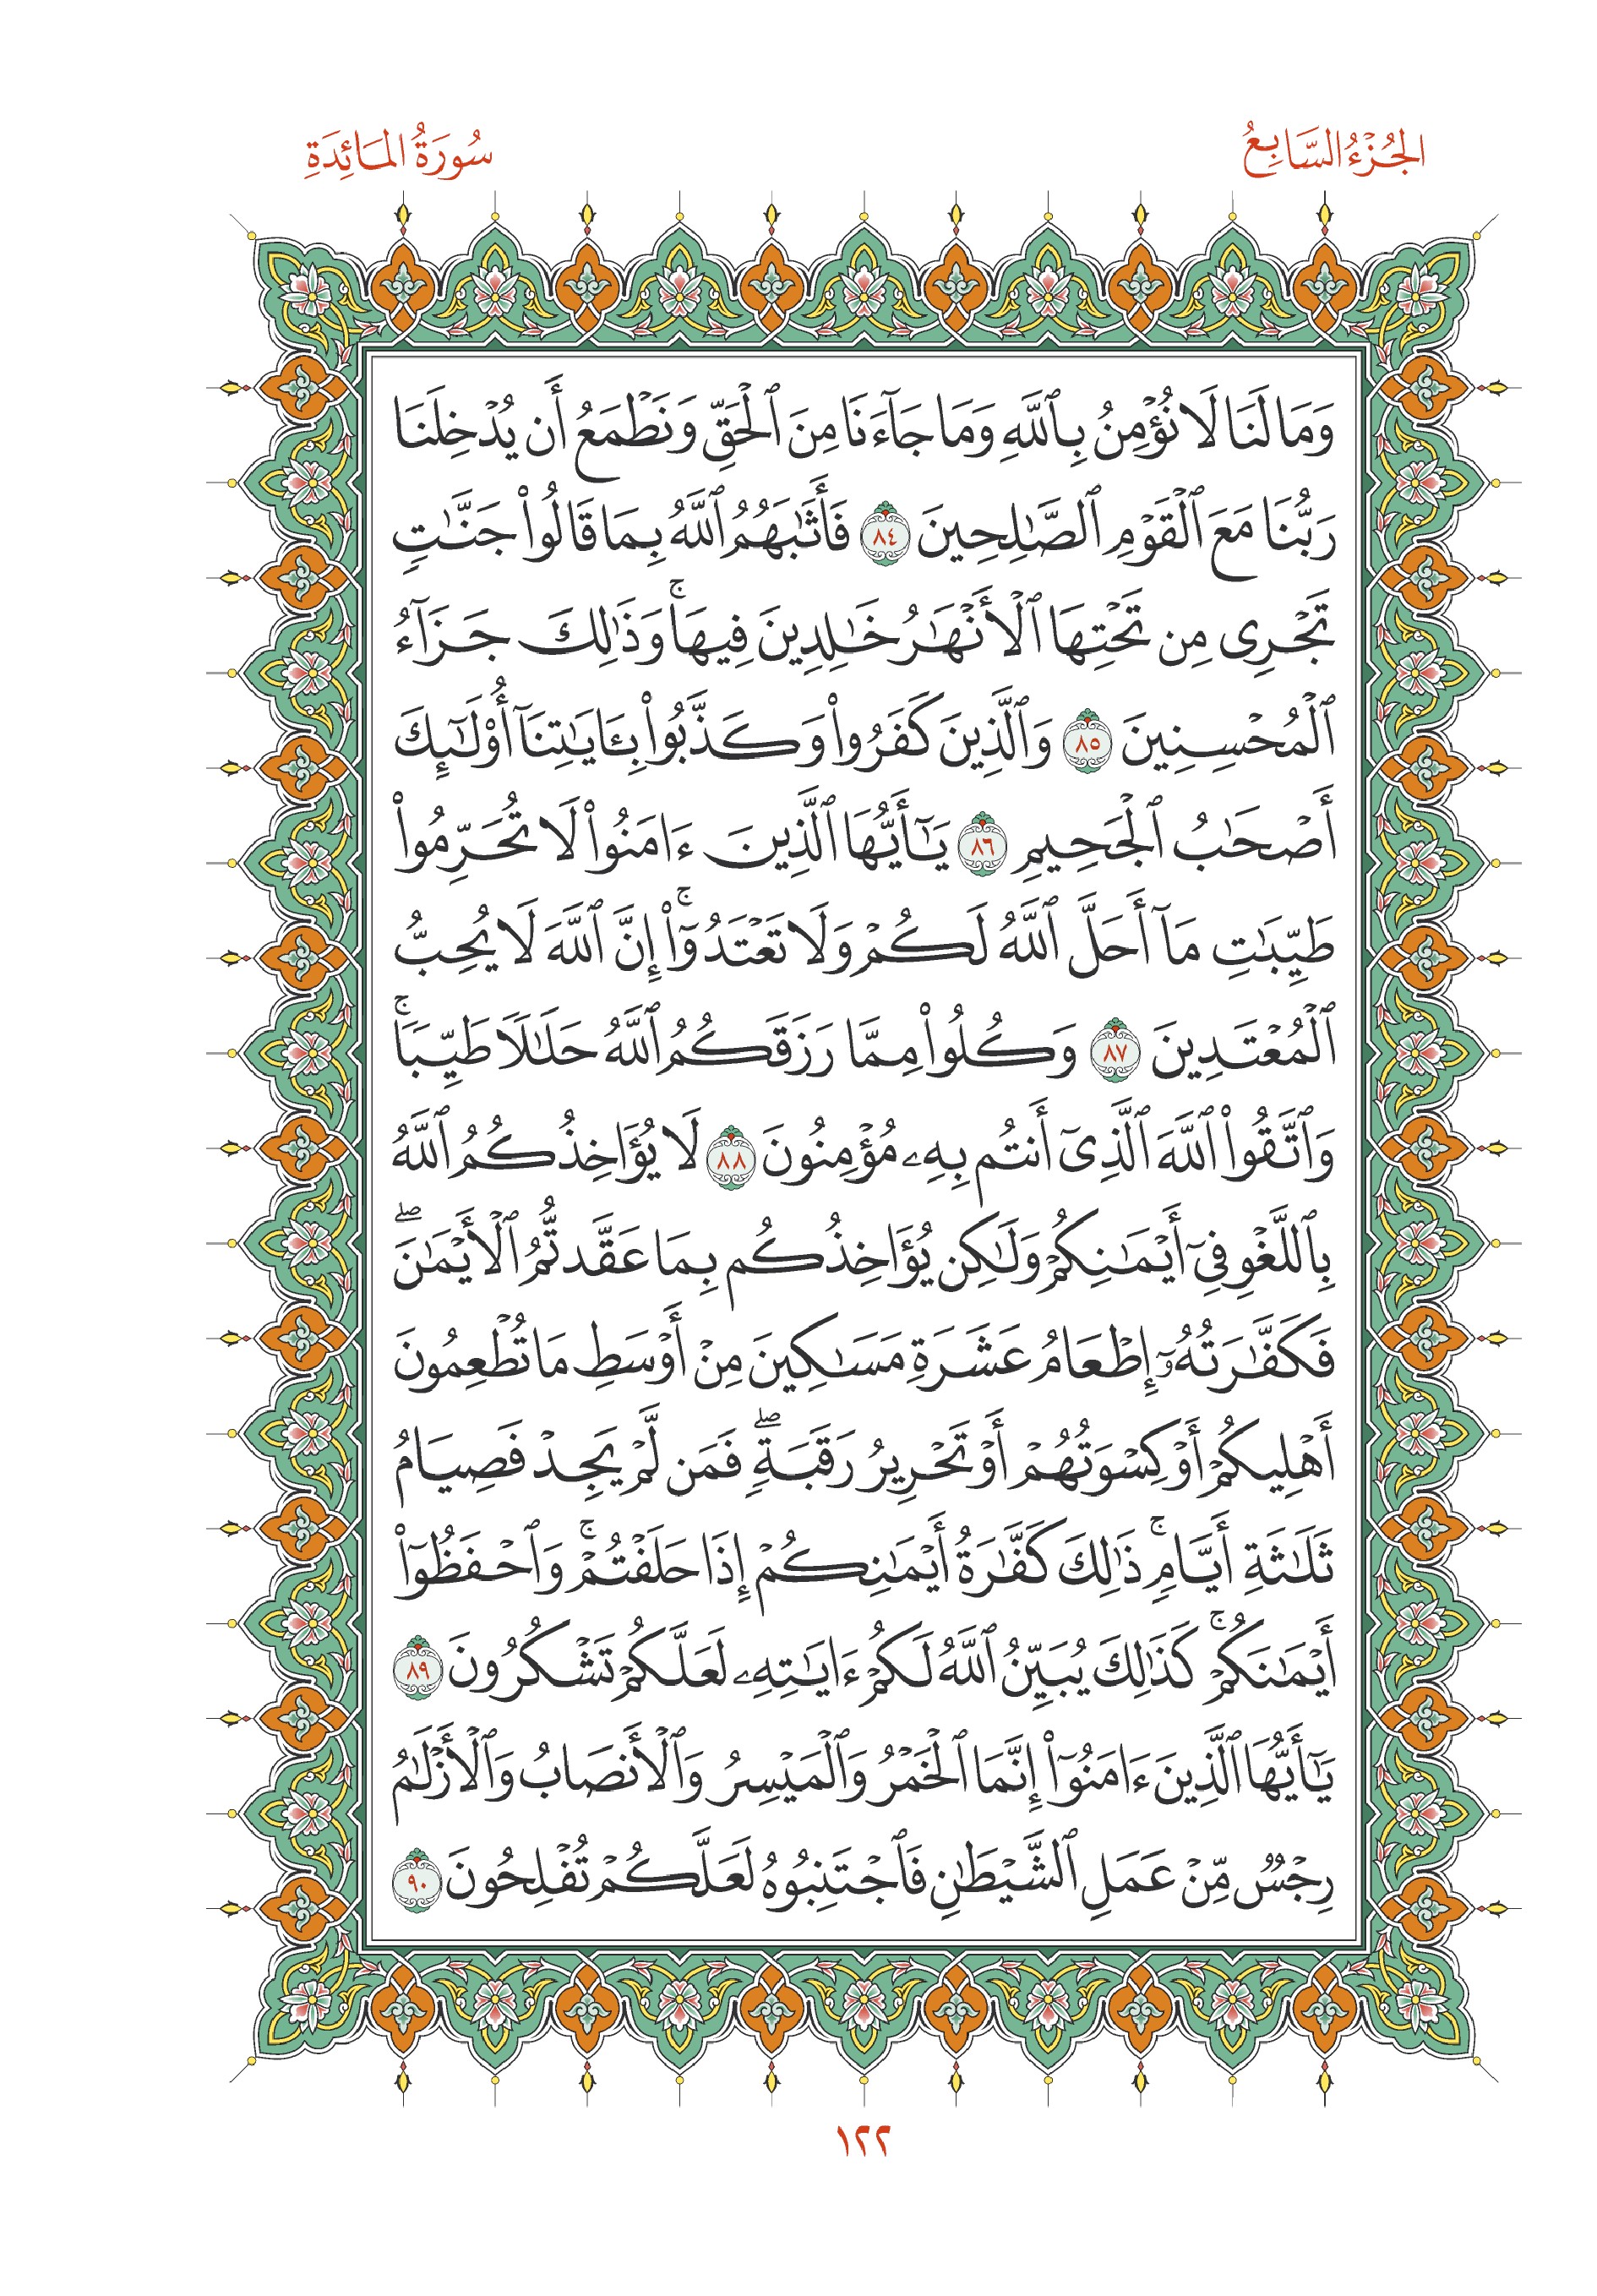 الجُزْءُ السَّابِعُ
سُورَةُ المَائِدَةِ
وَمَا لَنَا لَا نُؤْمِنُ بِٱللَّهِ وَمَا جَآءَنَا مِنَ ٱلْحَقِّ وَنَطْمَعُ أَن يُدْخِلَنَا
رَبُّنَا مَعَ ٱلْقَوْمِ ٱلصَّـٰلِحِينَ ٨٤ فَأَثَـٰبَهُمُ ٱللَّهُ بِمَا قَالُوا۟ جَنَّـٰتٍ
تَجْرِى مِن تَحْتِهَا ٱلْأَنْهَـٰرُ خَـٰلِدِينَ فِيهَا ۚ وَذَٰلِكَ جَزَآءُ
ٱلْمُحْسِنِينَ ٨٥ وَٱلَّذِينَ كَفَرُوا۟ وَكَذَّبُوا۟ بِـَٔايَـٰتِنَآ أُو۟لَـٰٓئِكَ
أَصْحَـٰبُ ٱلْجَحِيمِ ٨٦ يَـٰٓأَيُّهَا ٱلَّذِينَ ءَامَنُوا۟ لَا تُحَرِّمُوا۟
طَيِّبَـٰتِ مَآ أَحَلَّ ٱللَّهُ لَكُمْ وَلَا تَعْتَدُوٓا۟ ۚ إِنَّ ٱللَّهَ لَا يُحِبُّ
ٱلْمُعْتَدِينَ ٨٧ وَكُلُوا۟ مِمَّا رَزَقَكُمُ ٱللَّهُ حَلَـٰلًا طَيِّبًا ۚ
وَٱتَّقُوا۟ ٱللَّهَ ٱلَّذِىٓ أَنتُم بِهِۦ مُؤْمِنُونَ ٨٨ لَا يُؤَاخِذُكُمُ ٱللَّهُ
بِٱللَّغْوِ فِىٓ أَيْمَـٰنِكُمْ وَلَـٰكِن يُؤَاخِذُكُم بِمَا عَقَّدتُّمُ ٱلْأَيْمَـٰنَ ۖ
فَكَفَّـٰرَتُهُۥٓ إِطْعَامُ عَشَرَةِ مَسَـٰكِينَ مِنْ أَوْسَطِ مَا تُطْعِمُونَ
أَهْلِيكُمْ أَوْ كِسْوَتُهُمْ أَوْ تَحْرِيرُ رَقَبَةٍ ۖ فَمَن لَّمْ يَجِدْ فَصِيَامُ
ثَلَـٰثَةِ أَيَّامٍ ۚ ذَٰلِكَ كَفَّـٰرَةُ أَيْمَـٰنِكُمْ إِذَا حَلَفْتُمْ ۚ وَٱحْفَظُوٓا۟
أَيْمَـٰنَكُمْ ۚ كَذَٰلِكَ يُبَيِّنُ ٱللَّهُ لَكُمْ ءَايَـٰتِهِۦ لَعَلَّكُمْ تَشْكُرُونَ ٨٩
يَـٰٓأَيُّهَا ٱلَّذِينَ ءَامَنُوٓا۟ إِنَّمَا ٱلْخَمْرُ وَٱلْمَيْسِرُ وَٱلْأَنصَابُ وَٱلْأَزْلَـٰمُ
رِجْسٌ مِّنْ عَمَلِ ٱلشَّيْطَـٰنِ فَٱجْتَنِبُوهُ لَعَلَّكُمْ تُفْلِحُونَ ٩٠
١٢٢